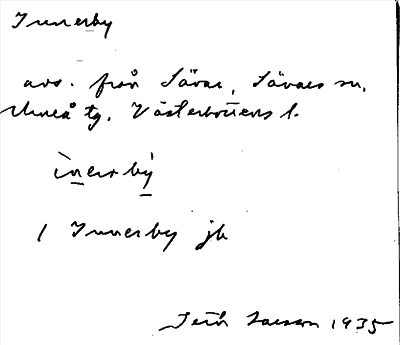 Innerby
avs. från Sävar, Sävars sn,
Umeå tg. Västerbottens l.
ìnerbỳ
/ Innerby jb
Seth Larsson 1935